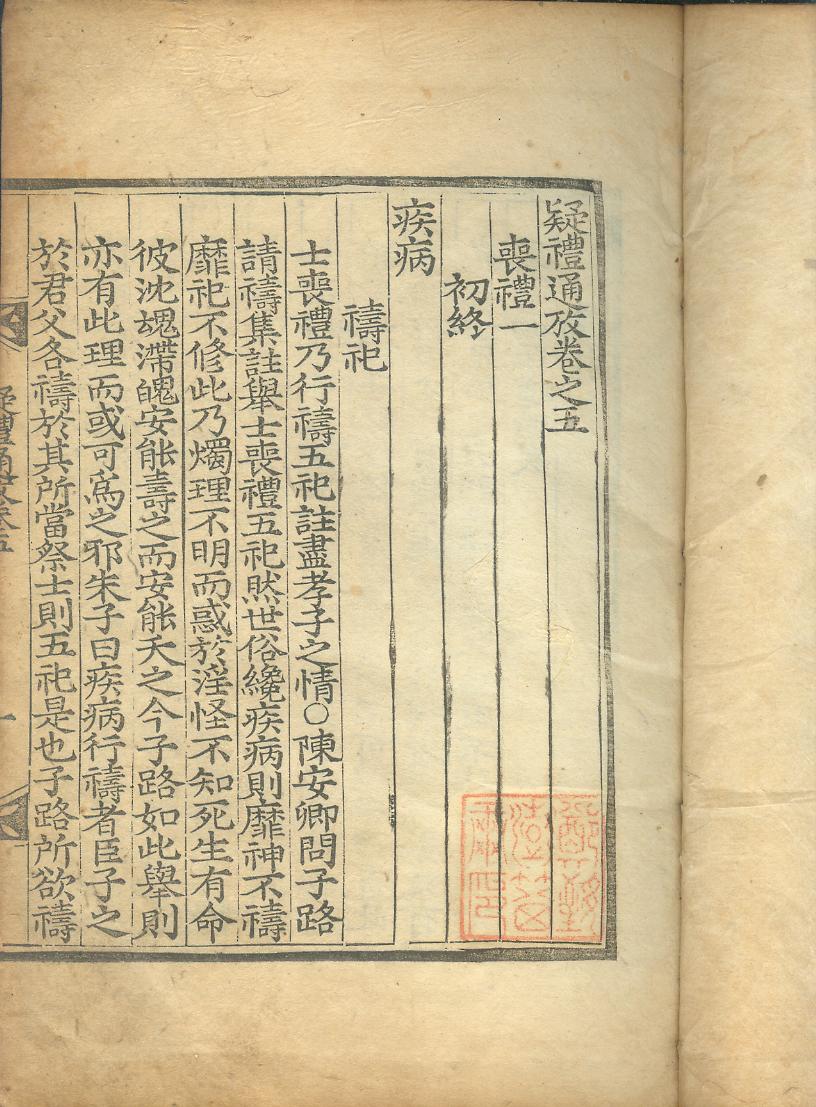 疑禮通攷卷之五
喪禮一
初終
疾病
禱祀
士喪禮乃行禱五祀註盡孝子之情○陳安卿問子路
請禱集註舉士喪禮五祀然世俗纔疾病則靡神不禱
靡祀不修此乃燭理不明而惑於淫怪不知死生有命
彼沈魂滯魄安能壽之而安能夭之今子路如此舉則
亦有此理而或可爲之邪朱子曰疾病行禱者臣子之
於君父各禱於其所當祭士則五祀是也子路所欲禱
疑禮通攷卷五
一